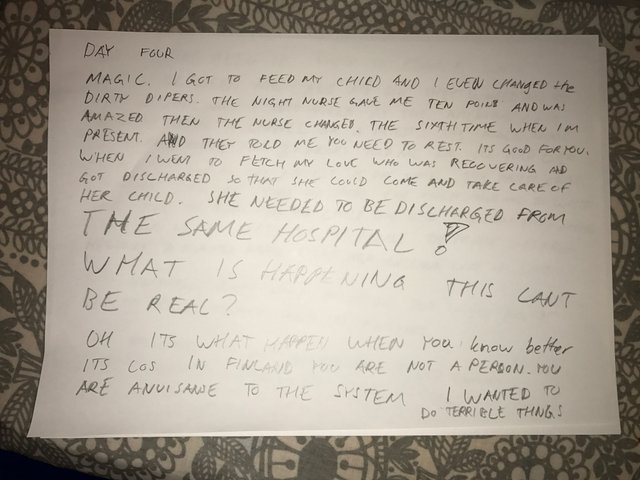 DAY FOUR
MAGIC. I GOT TO FEED MY CHILD AND I EVEN CHANGED the
DIRTY DIPERS. THE NIGHT NURSE GAVE ME TEN POINS AND WAS
AMAZED THEN THE NURSE CHANGED. THE SIXTH TIME WHEN I'M
PRESENT. AND THEY TOLD ME YOU NEED TO REST. ITS GOOD FOR YOU.
WHEN I WENT TO FETCH MY LOVE WHO WAS RECOVERING AD
GOT DISCHARGED SO THAT SHE COULD COME AND TAKE CARE OF
HER CHILD. SHE NEEDED TO BE DISCHARGED FROM
THE SAME HOSPITAL!
WHAT IS HAPPENING THIS CANT
BE REAL?
OH ITS WHAT HAPPEN WHEN YOU know better
ITS COS IN FINLAND YOU ARE NOT A PERSON. YOU
ARE ANUISANE TO THE SYSTEM I WANTED TO
DO TERRIBLE THINGS